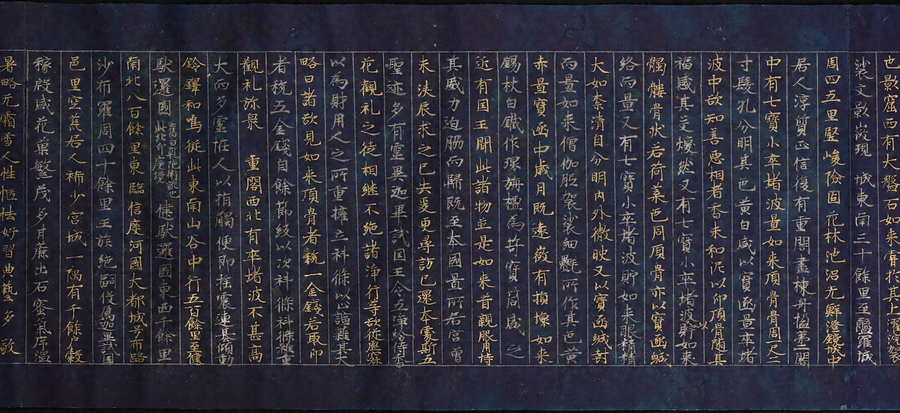 也影窟西有大盤石如來甞於其上濯浣袈
裟文影微現　城東南三十餘里至醯羅城
周四五里竪峻險固花林池沼光鮮澄鏡城中
居人淳質正信復有重閣畫棟丹楹第二閣
中有七寶小卒堵波置如來頂骨骨周一尺二
寸髮孔分明其色黃白盛以寶函置卒堵
波中欲知善惡相者香末和泥以印頂骨隨其
福感其文煥然又有七寶小卒堵波以貯如來
髑髏骨狀若荷葉色同頂骨亦以寶函緘
絡而置又有七寶小卒堵波貯如來眼精精
大如柰清白分明內外徹映又以寶函緘封
而置如來僧伽胝袈裟細㲲所作其色黃
赤置寶函中歲月既遠微有損壞如來
錫杖白鐵作環栴檀為笴寶筒盛之
近有国王聞此諸物並是如來昔親服持
其威力迫脇而歸既至本國置所居宮曾
未浹辰求之已失爰更尋訪已還本處斯五
聖迹多有靈異迦畢試国王令五淨行給侍香
花觀礼之徒相継不絕諸淨行等欲從虛寂
以為財用人之所重權立科條以諠雜其大
略曰諸欲見如來頂骨者稅一金錢若取印
者稅五金錢自餘節級以次科條科條雖重
觀礼弥衆　重閣西北有卒堵波不甚高
大而多靈恠人以指觸便即搖震連基傾動
鈴鐸和鳴從此東南山谷中行五百餘里至揵
馱邏國　健馱邏國東西千餘里
南北八百餘里東臨信度河國大都城号布路
沙布羅周四十餘里王族絕嗣役属迦畢試国
邑里空荒居人稀少宮城一隅有千餘戶穀
稼殷盛花菓繁茂多甘蔗出石蜜氣序溫
暑略无霜雪人性恇怯好習典藝多敬